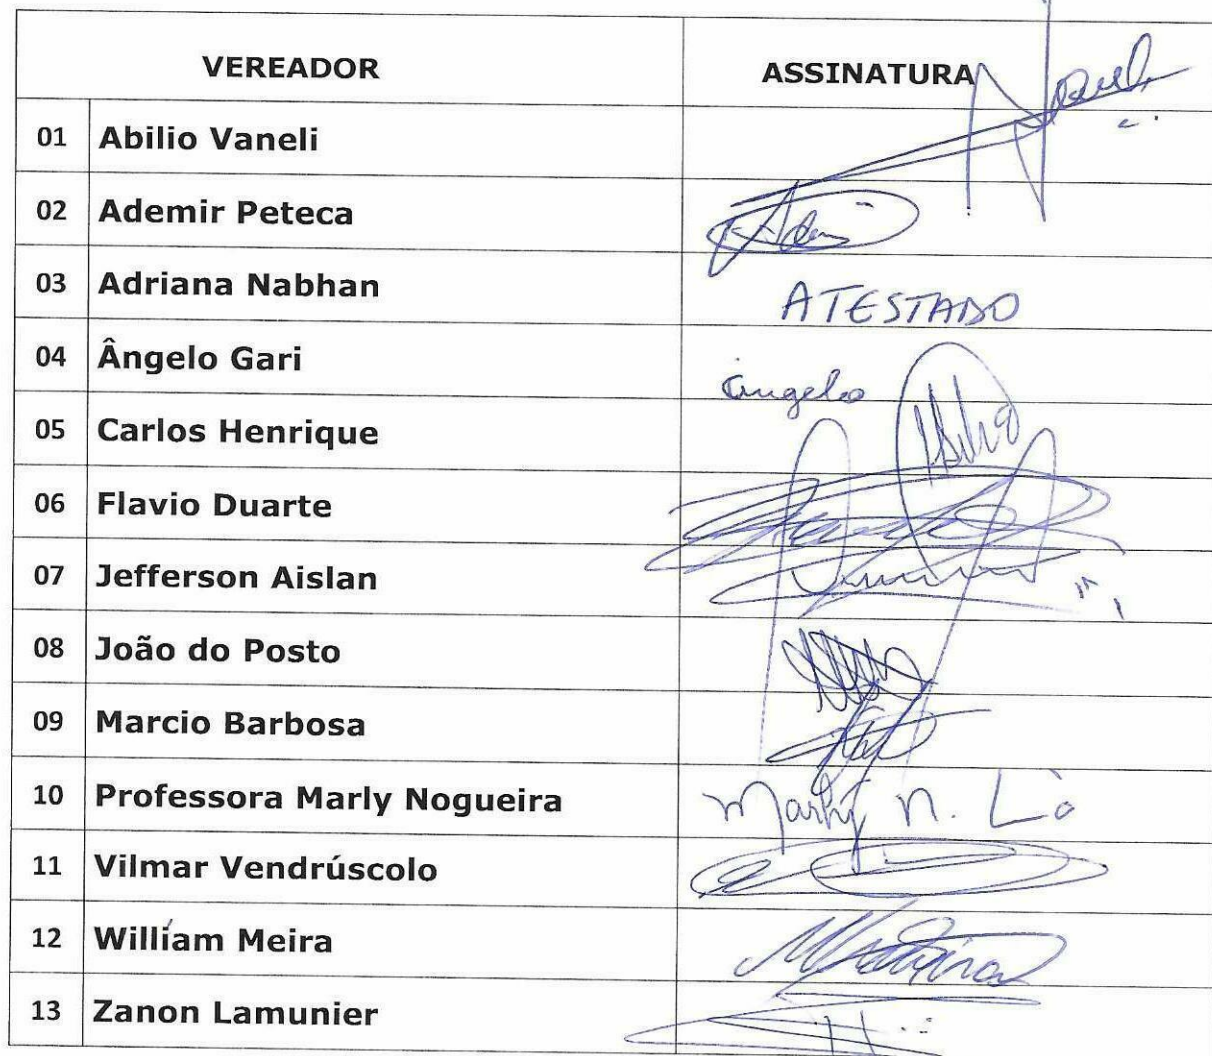 VEREADOR ASSINATURA
01 Abilio Vaneli
02 Ademir Peteca
03 Adriana Nabhan ATESTADO
04 Ângelo Gari Ângelo
05 Carlos Henrique
06 Flavio Duarte
07 Jefferson Aislan
08 João do Posto
09 Marcio Barbosa
10 Professora Marly Nogueira Marly N.
11 Vilmar Vendrúscolo
12 William Meira
13 Zanon Lamunier